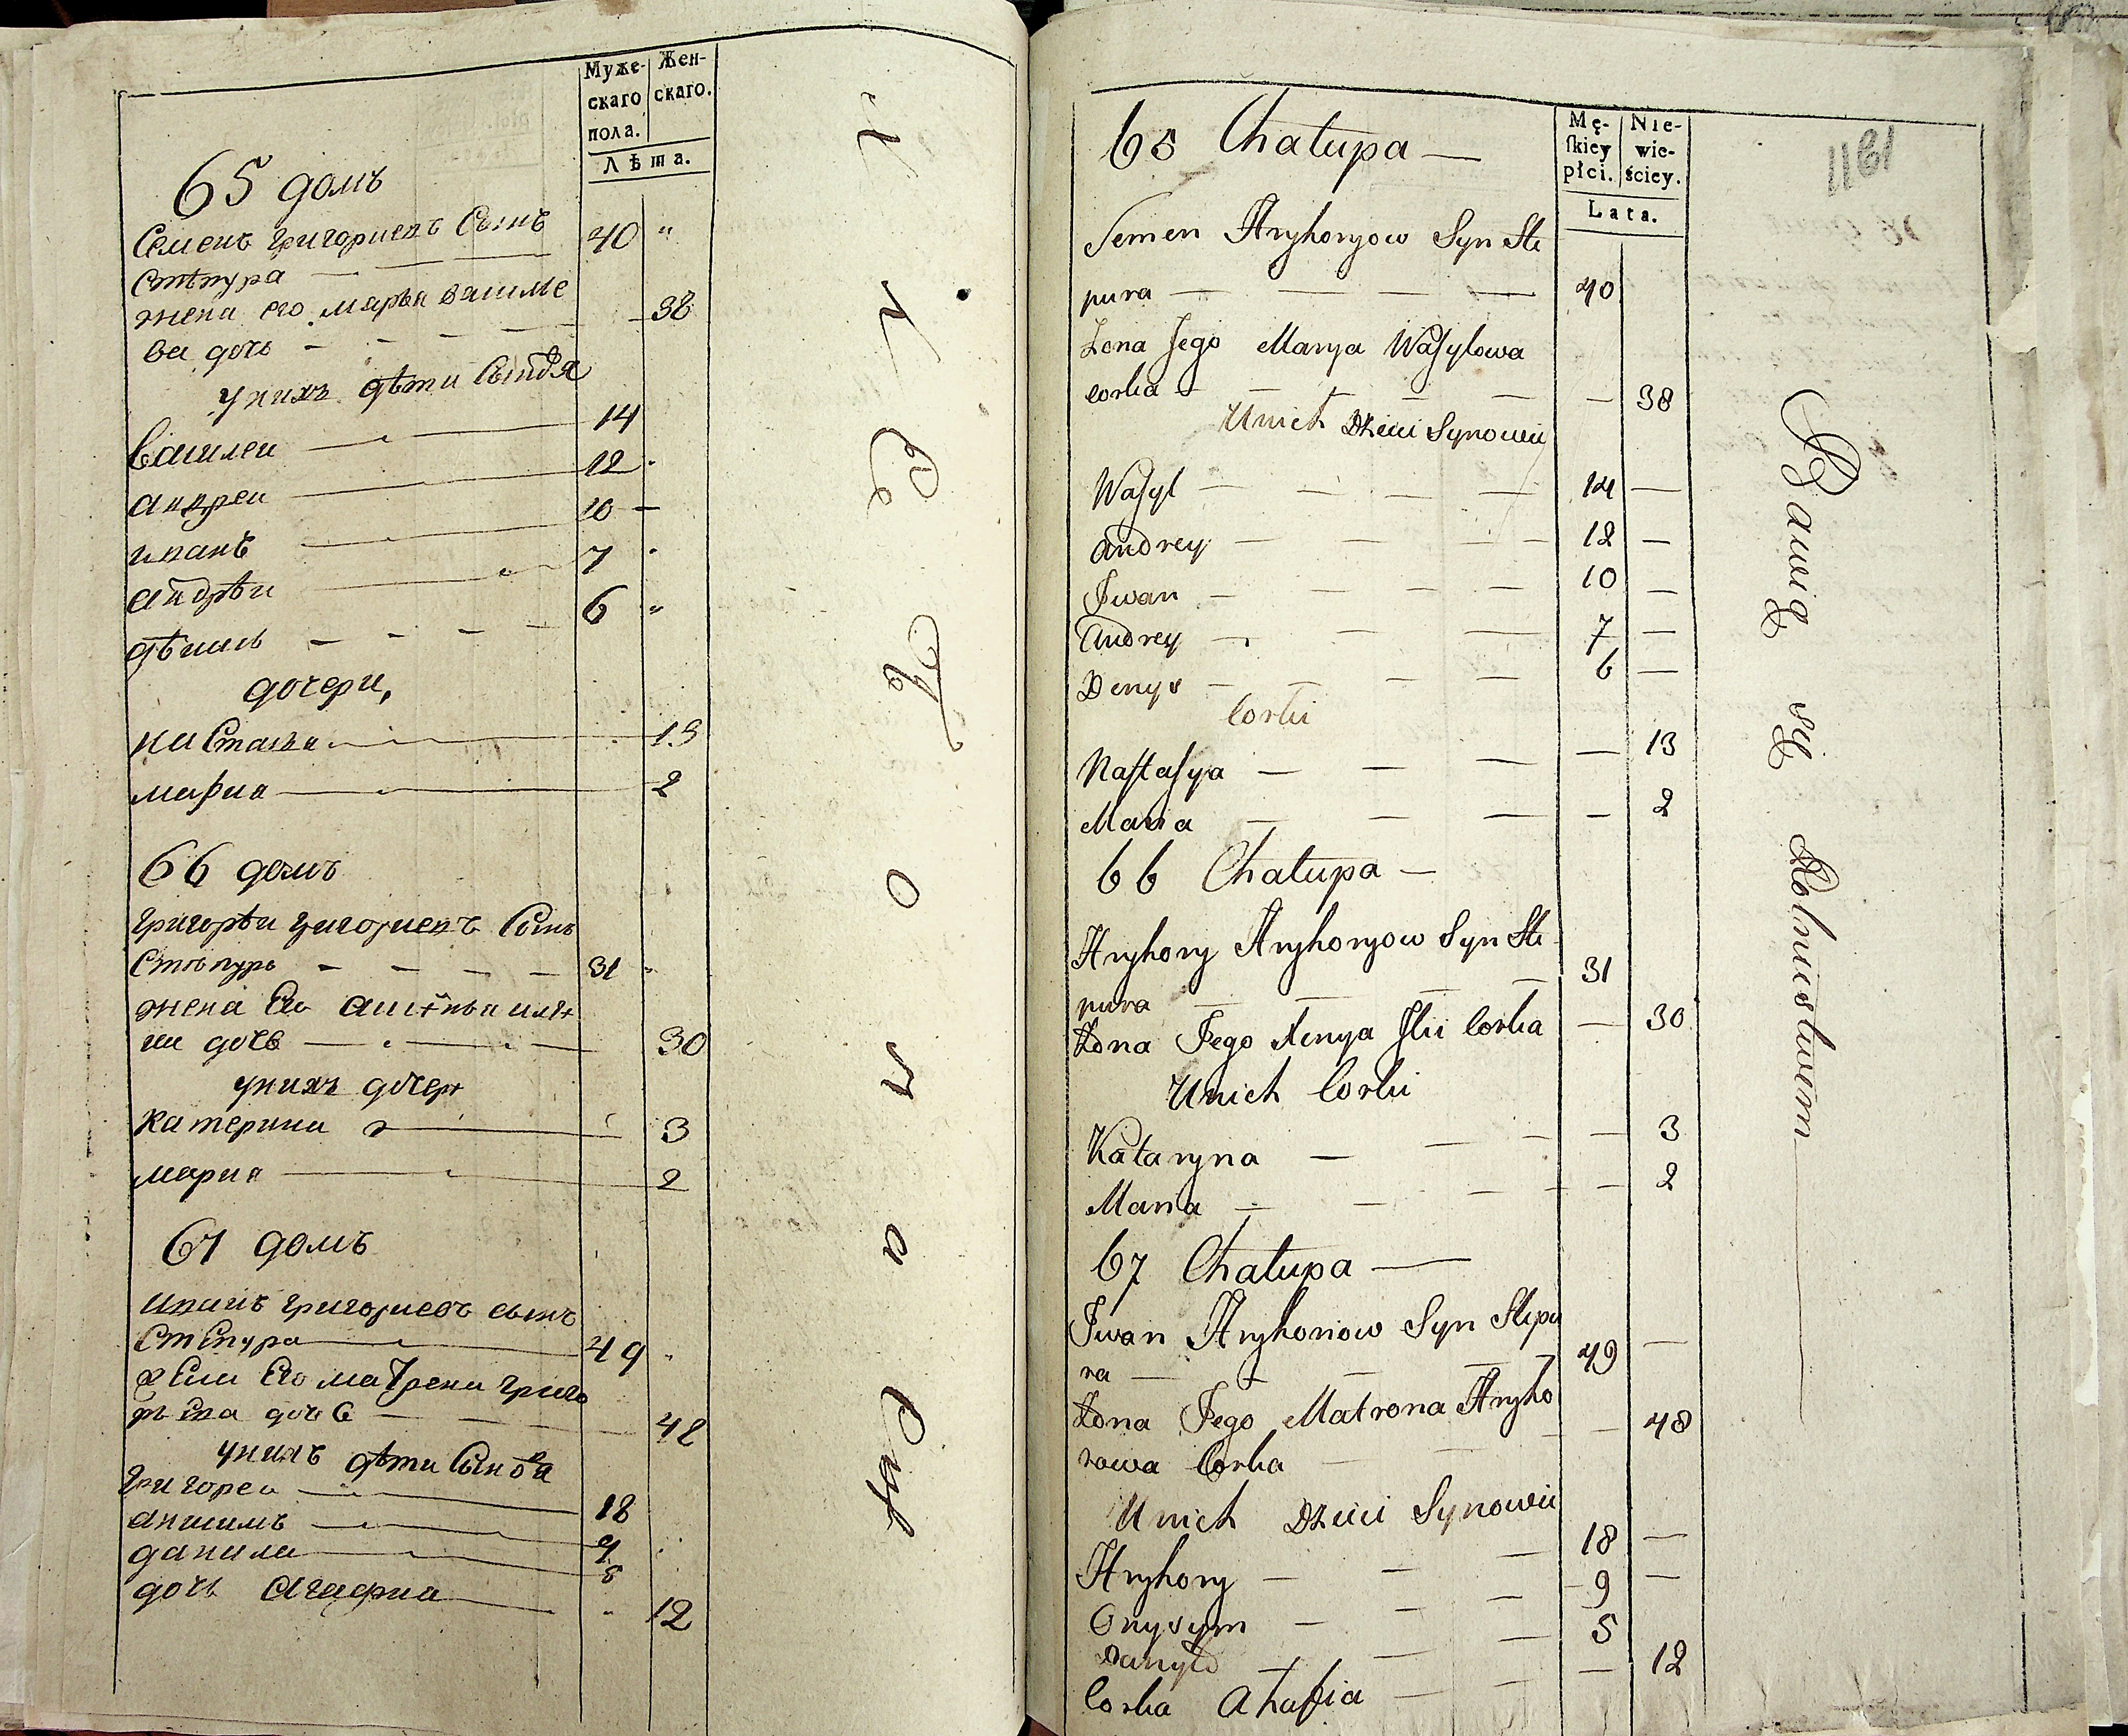 Муже-
скаго
пола.
Жен-
скаго.
Лѣта.
65 домъ
Семенъ григориевъ Сынъ
Стѣпура — — — 40 "
жена его марья василе
ва дочь — - - — 38
уних дѣти Сыновя
василеи — 14
андреи — 12
иванъ — 10 —
андрѣи — 7
дѣнисъ - - - - 6 "
дочери,
настася — 13
мариа — 2
66 домъ
григорѣи григориевъ Сынъ
Стѣпура — — — — 31
жена Его
ии дочь — 30
унихъ дочери
катерина — 3
мариа — 2
67 домъ
иванъ григориевъ сынъ
Степура — 49
жена Его матрена григо
рьева дочь — — 48
унихъ дѣти Сынова
григореи — 18
анисимъ — 9
данила — 5
дочь агафиа — 12
Mę-
ſkiey
płci.
Nie-
wie-
ściey.
Lata.
65 Chałupa —
Semen Hryhoryow Syn Ste
pura — — — — 40
Żona Jego Marya Waſylowa
corka — — — — — 38
Unich Dzieci Synowie
Waſyl — — — — 14 —
Andrey — — — — 12 —
Jwan — — — — 10 —
Andrey — — — 7 —
Denys — — — — 6 —
Corki
Naſtaſya — — — — 13
Maria — — — — 2
66 Chałupa —
Hryhory Hryhoryow Syn Ste
pura — — — — 31
Żona Jego Xenya Jlii Corka — 30
Unich Corki
Kataryna — — — — 3
Maria — — — — 2
67 Chałupa —
Jwan Hryhoriow Syn Stepu
ra — — — — 49 —
Żona Jego Matrona Hryho
rowa Corka — — — — 48
Unich Dzieci Synowie
Hryhory — — — 18 —
Onysym — — — 9 —
Danyło — — — 5
Corka Ahafia — — — 12
Bawią się Rolnictwem —